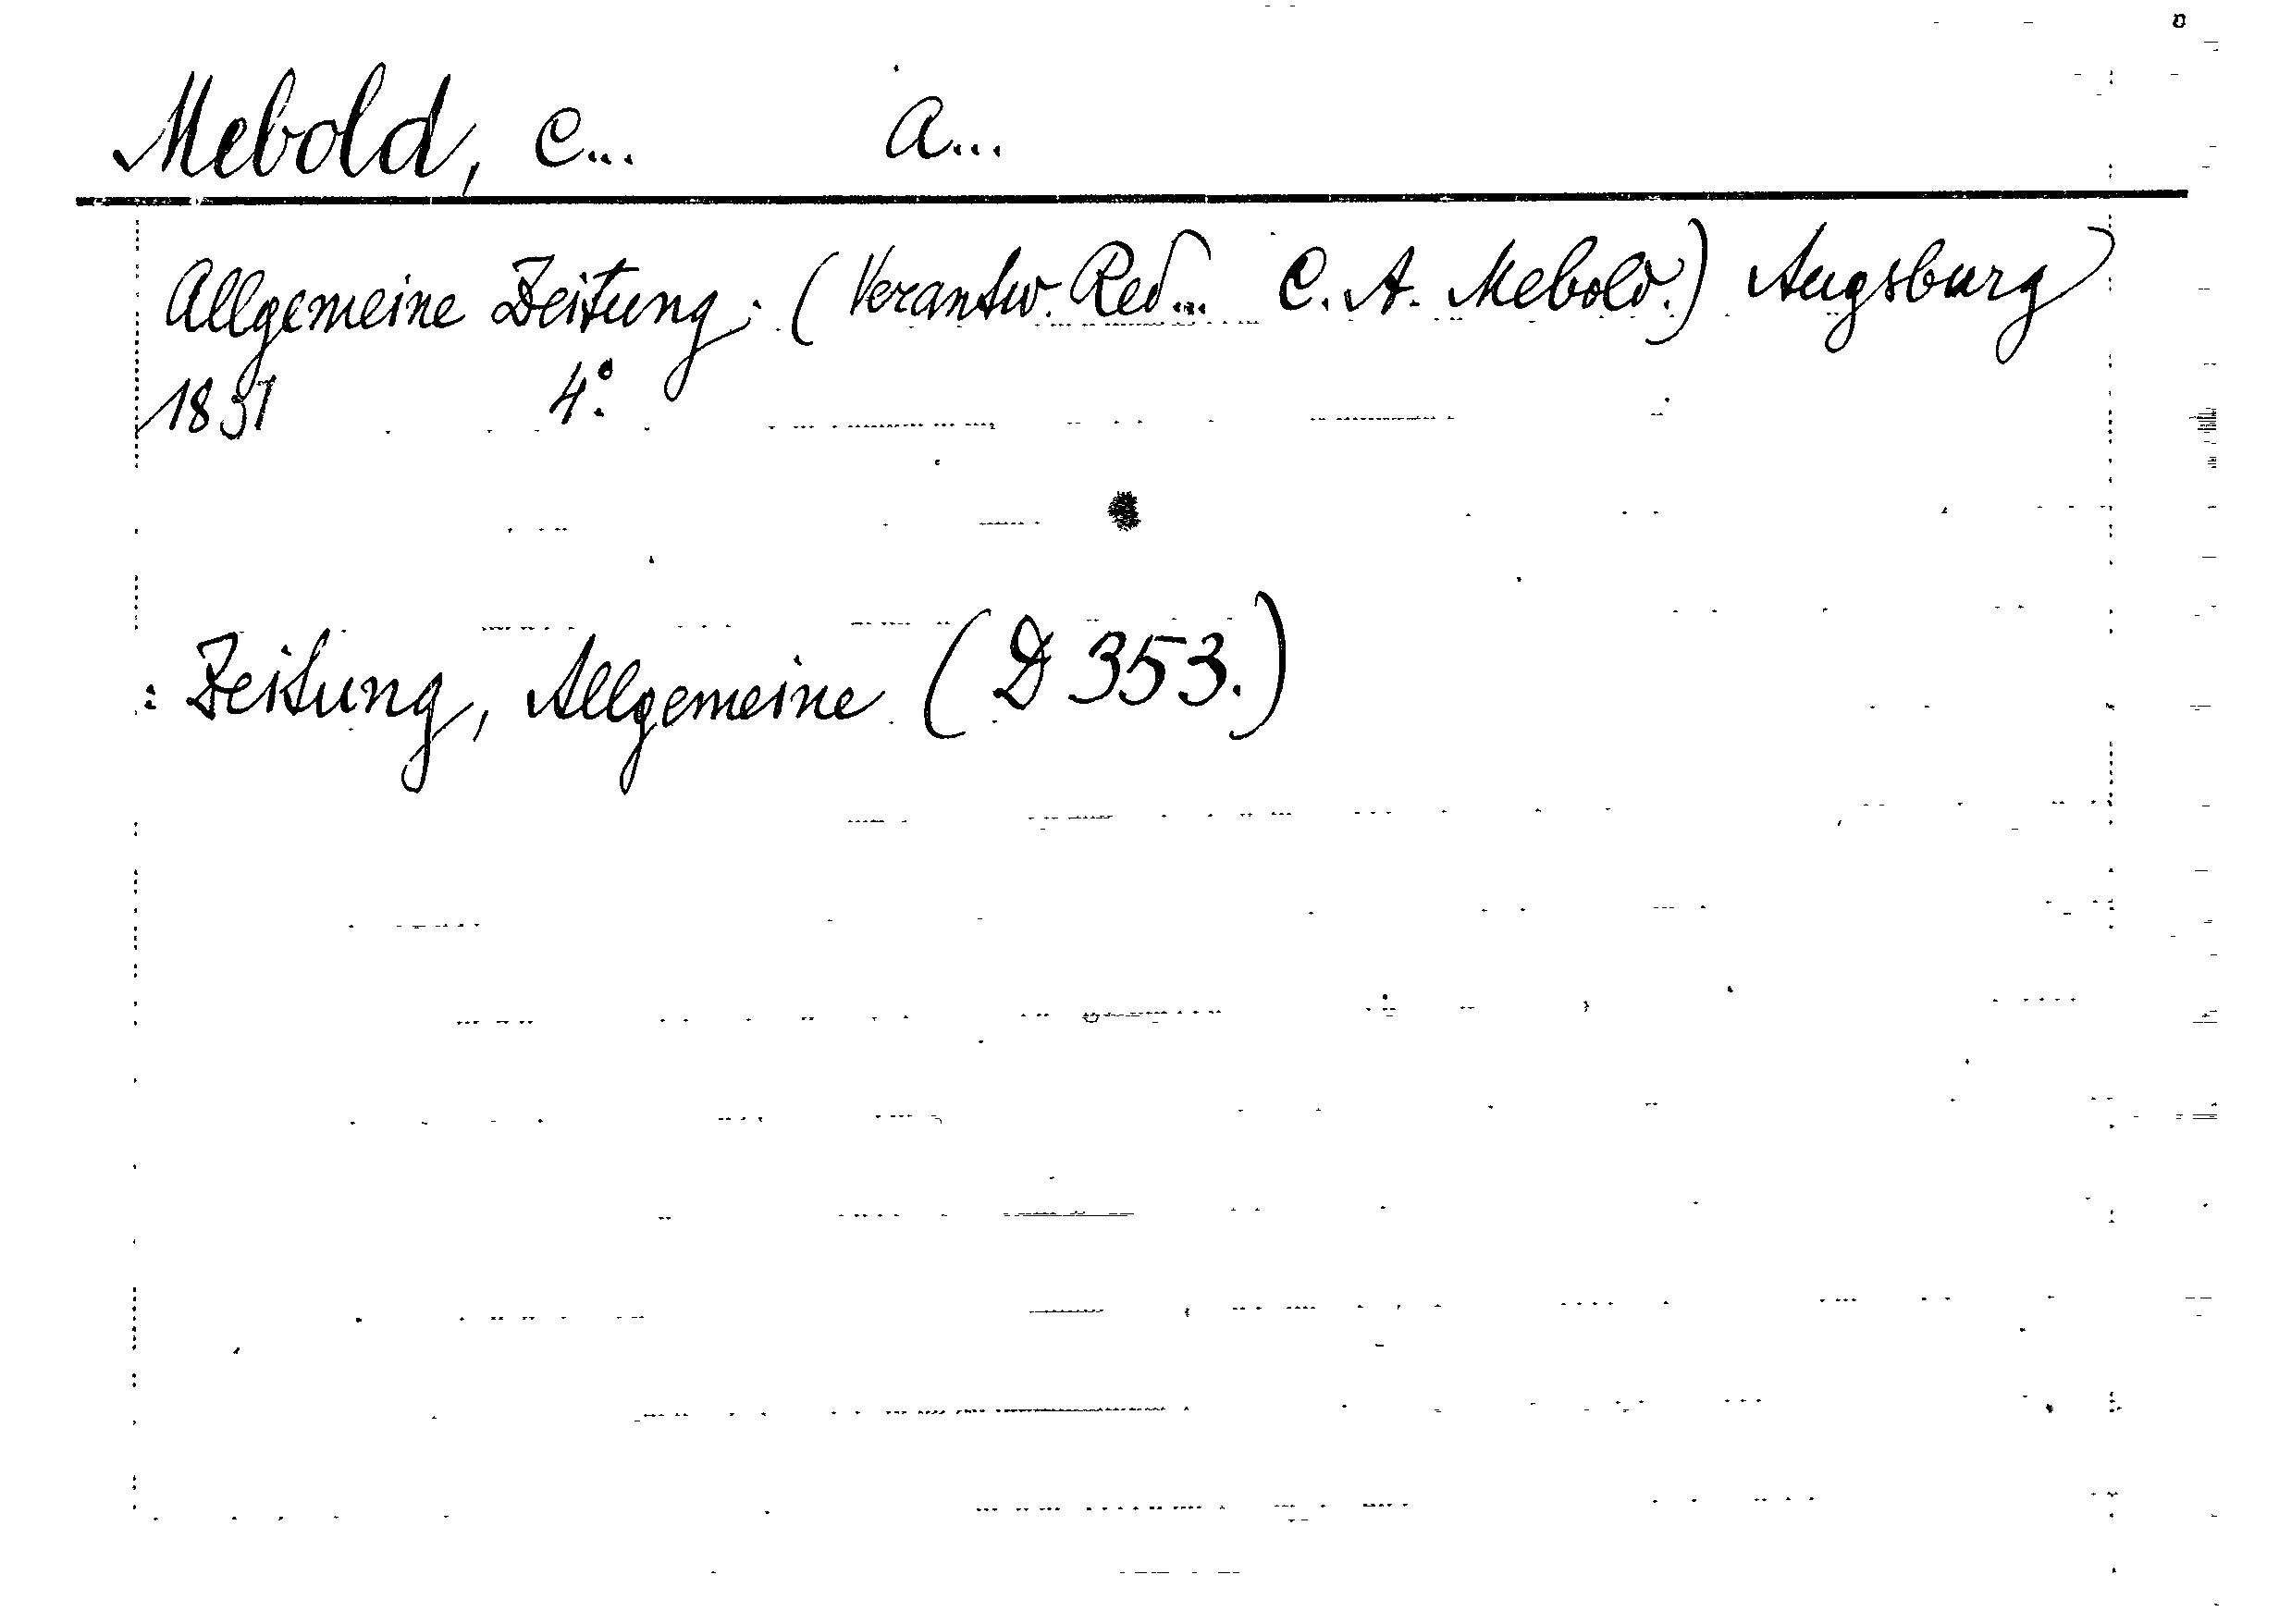 Mebold, C... A...
Allgemeine Zeitung. (Verantw. Red... C. A. Mebold.) Augsburg
1837 4°.
: Zeitung, Allgemeine (D 353.)